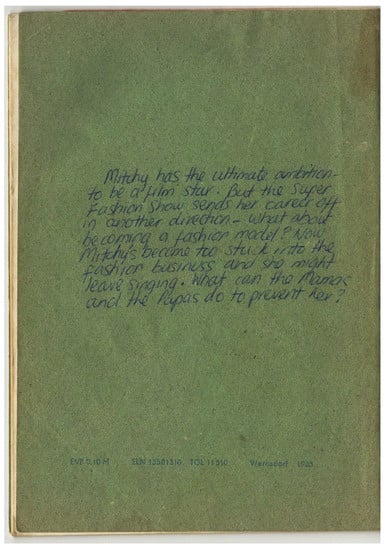 Mitchy has the ultimate ambition-
to be a film star. But the Super
Fashion Show sends her career off
in another direction - what about
becoming a fashion model? Now
Mitchy's become too stuck into the
fashion business and she might
leave singing. What can the Mamas
and the Papas do to prevent her?
EVP 0,10 M ELN 13501310 TGL 11510 Wernsdorf